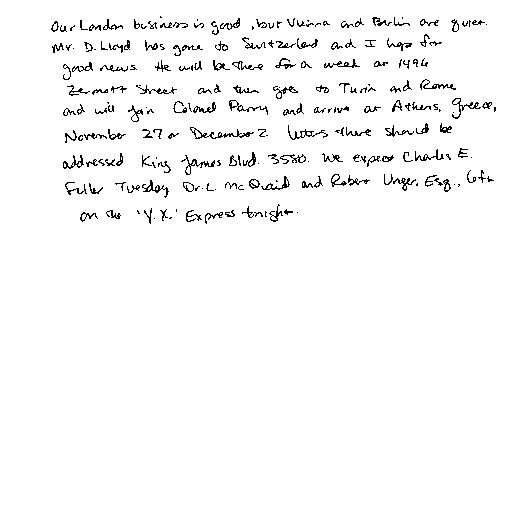 Our London business is good, but Vienna and Berlin are quiet.
Mr. D. Lloyd has gone to Switzerland and I hope for
good news. He will be there for a week at 1496
Zermott Street and then goes to Turin and Rome
and will join Colonel Parry and arrive at Athens, Greece,
November 27 or December 2. Letters there should be
addressed King James Blvd. 3580. We expect Charles E.
Fuller Tuesday. Dr. L. McQuaid and Robert Unger, Esq., left
on the 'Y.X.' Express tonight.